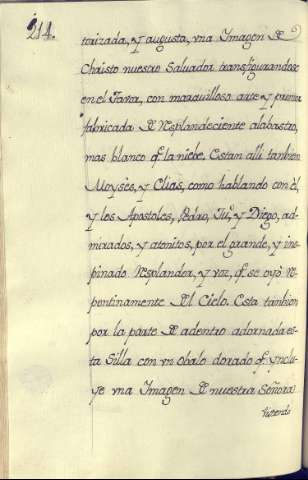 214.
torizada, y augusta, vna Imagen de
Christo nuestro Salvador transfigurandose
en el Tavor, con maravilloso arte y primor
fabricada de resplandeciente alabastro,
mas blanco q̃ la nieve. Estan alli tambien
Moyses, y Elias, como hablando con él,
y los Apostoles, Pedro, Juº, y Diego, ad-
mirados, y atonitos, por el grande, y ino-
pinado resplandor, y voz, q̃ se oyò re-
pentinamente del Cielo. Esta tambien
por la parte de adentro adornada es-
ta Silla con vn obalo dorado q̃ ynclu-
ye vna Imagen de nuestra Señora